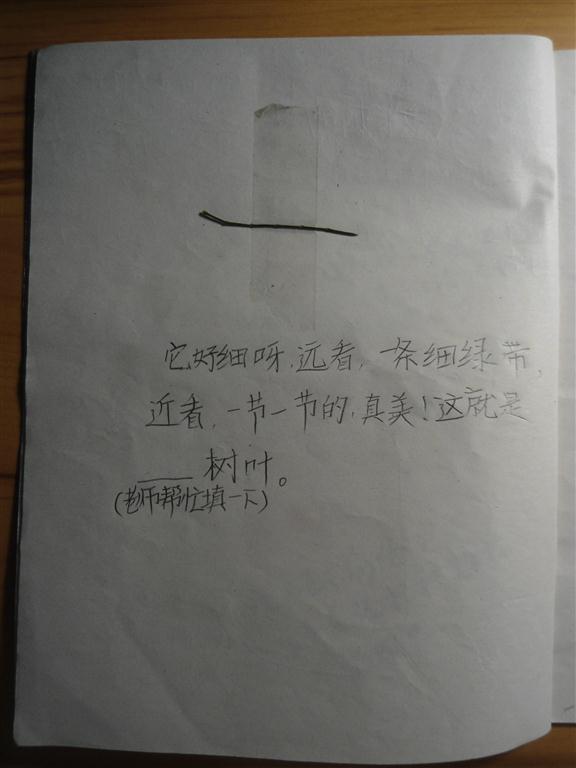 它好细呀,远看,一条细绿带,
近看,一节一节的,真美!这就是
____树叶。
(老师帮忙填一下)